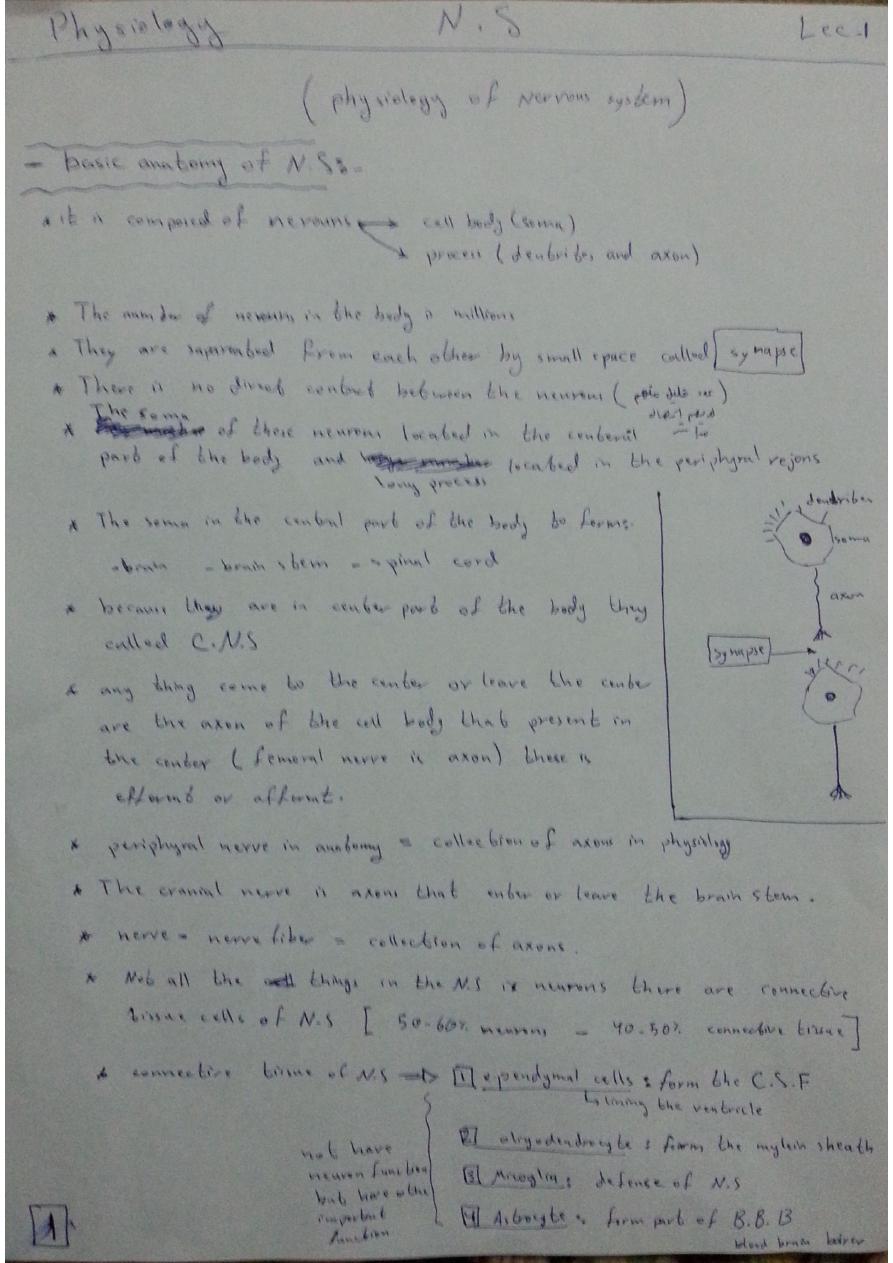 Physiology N.S Lec.1
(physiology of Nervous system)
- basic anatomy of N.S:-
* it is composed of nerouns → cell body (soma)
→ process (denbrites and axon)
* The number of neurons in the body is millions
* They are saparated from each other by small space called synapse
* There is no direct contact between the neurons
The soma
* of these neurons located in the centeral
part of the body and located in the periphyral rejons
long process
* The soma in the central part of the body to forms:
- brain - brain stem - spinal cord
* because they are in center part of the body they
called C.N.S
* any thing come to the center or leave the center
are the axon of the cell body that present in
the center (femoral nerve is axon) these is
efferent or afferent.
dendrites
soma
axon
synapse
* periphyral nerve in anatomy = collection of axons in physiology
* The cranial nerve is axons that enter or leave the brain stem.
* nerve = nerve fiber = collection of axons.
* Not all the things in the N.S is neurons there are connective
tissue cells of N.S [ 50-60% neurons - 40-50% connective tissue]
* connective tissue of N.S → 1 ependymal cells : form the C.S.F
↳ lining the ventricle
2 olygodendrocyte : form the mylein sheath
3 Microglia : defense of N.S
4 Astrocyte : form part of B.B.B
blood brain
not have
neuron function
but have other
important
function
1